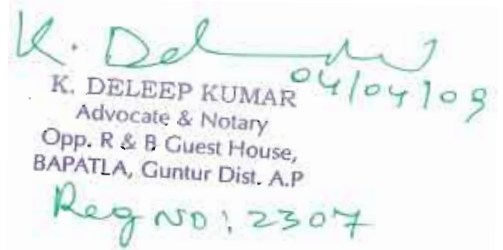 K. Del
04/04/09
K. DELEEP KUMAR
Advocate & Notary
Opp. R & B Guest House,
BAPATLA, Guntur Dist. A.P
Reg No: 2307